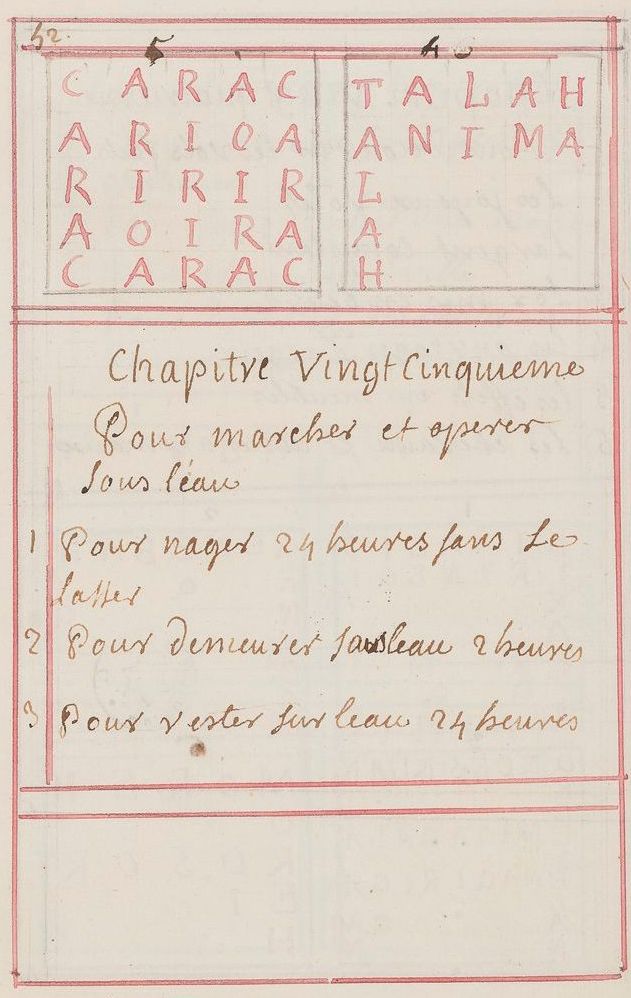 52.
5
C A R A C
A R I O A
R I R I R
A O I R A
C A R A C
6
T A L A H
A N I M A
L
A
H
Chapitre Vingt Cinquieme
Pour marcher et operer
sous l'éau
1 Pour nager 24 heures sans se
lasser
2 Pour demeurer sous leau 2 heures
3 Pour rester sur leau 24 heures